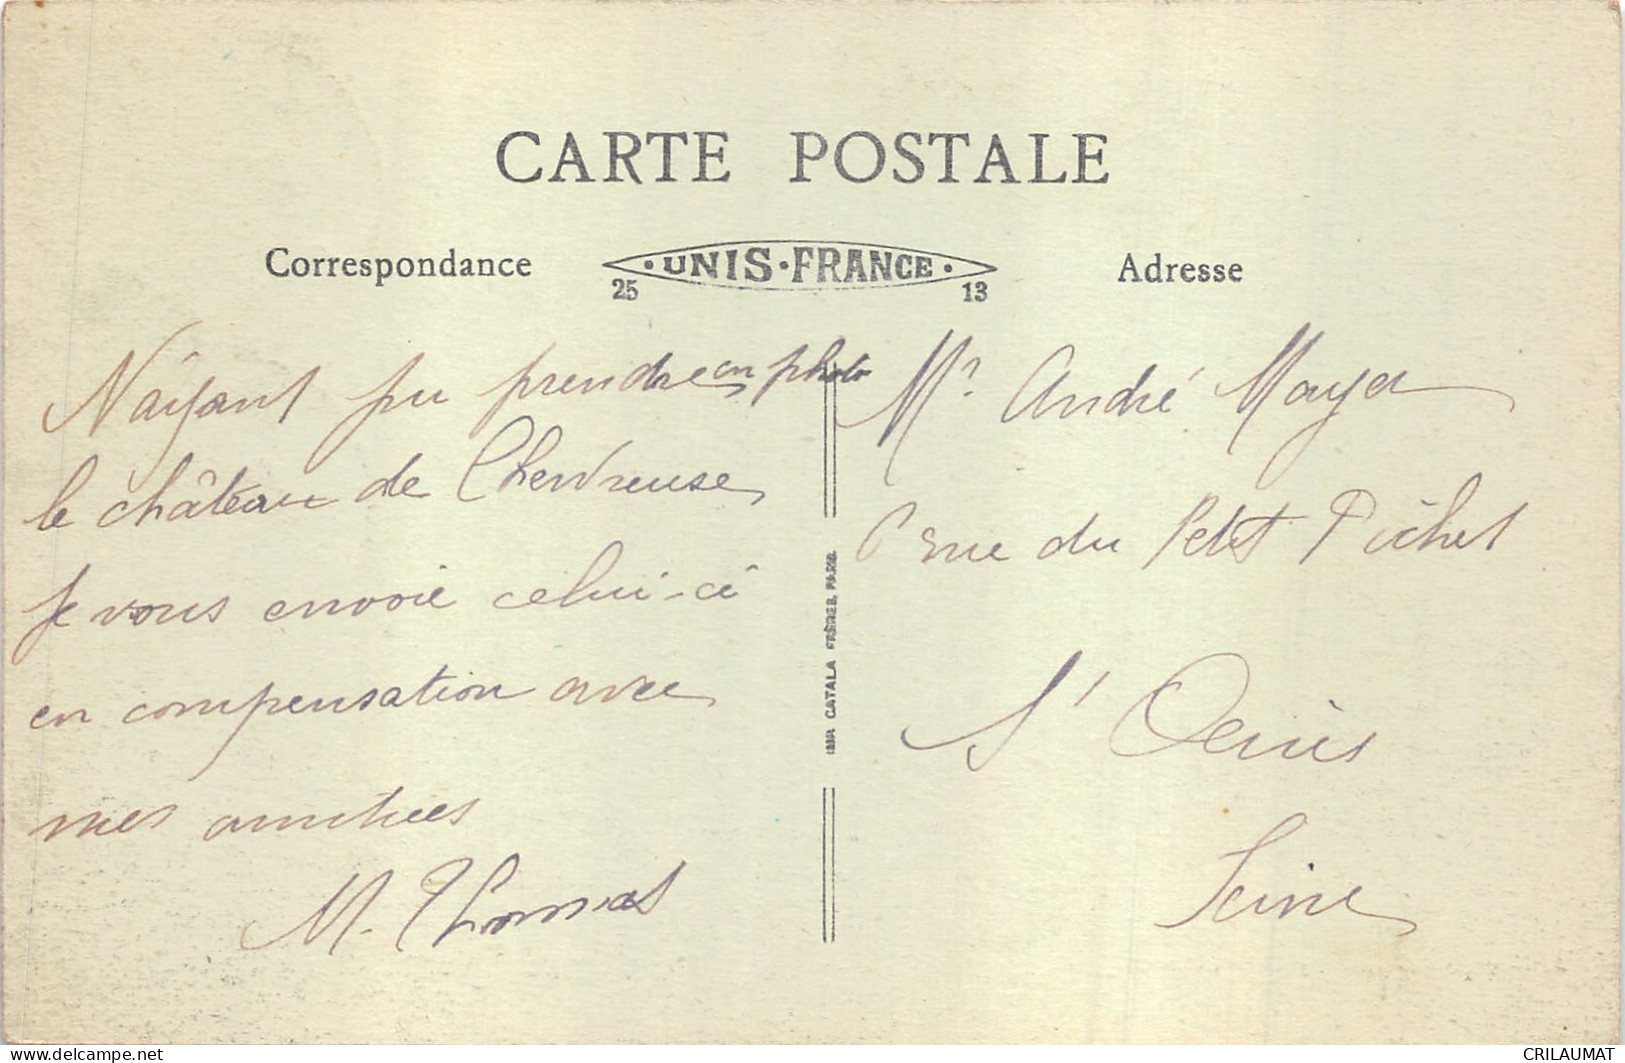 CARTE POSTALE
Correspondance
UNIS-FRANCE
25 13
Adresse
N'ayant pu prendre en photo
le château de Chevreuse
Je vous envoie celui-ci
en compensation avec
mes amitiées
M. Thomas
IMP. CATALA FRÈRES, PARIS
Mr. André
rue du Petit
St Denis
Seine
www.delcampe.net
CRILAUMAT